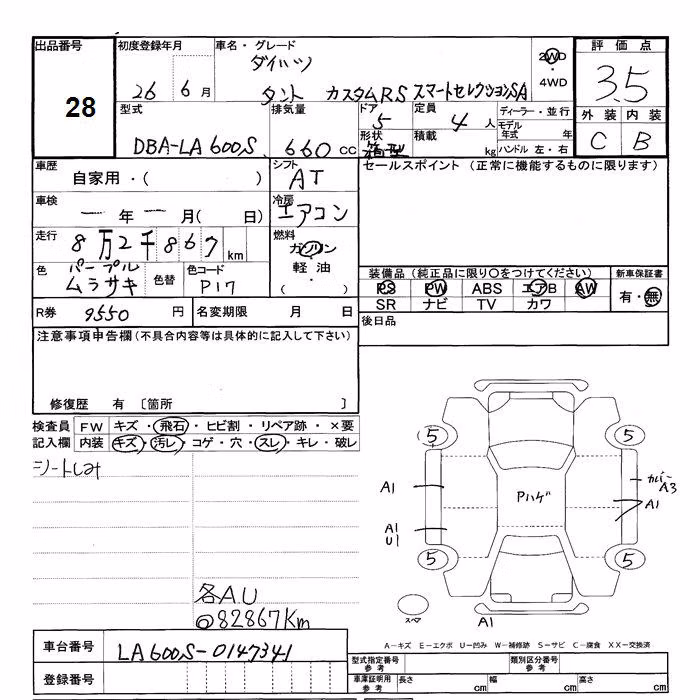 出品番号 初度登録年月 車名・グレード 評価点
28 26 6月 ダイハツ 2WD ・4WD 3.5
タント カスタムRS スマートセレクションSA
型式 排気量 ドア 定員 ディーラー・並行 外装 内装
DBA-LA600S 660cc 5 4人 モデル年式 年 C B
形状 箱型 積載 kg ハンドル 左・右
車歴 シフト セールスポイント (正常に機能するものに限ります)
自家用・( ) AT
車検 冷房
ー年ー月( 日) エアコン
走行 燃料
8万2千867km ガソリン
軽油・
( )
色 パープル 色替 色コード
ムラサキ P17
装備品 (純正品に限り○をつけてください) 新車保証書
PS PW ABS エアB AW 有・無
SR ナビ TV カワ
R券 9550円 名変期限 月 日 後日品
注意事項申告欄 (不具合内容等は具体的に記入して下さい)
修復歴 有 〔箇所 〕
検査員 FW キズ・飛石・ヒビ割・リペア跡・×要
記入欄 内装 キズ・汚レ・コゲ・穴・スレ・キレ・破レ
シートしみ
5 5
A1 Pハゲ カバーA3
A1
A1
U1
5 5
各A.U
◎82867Km
スペア A1
A-キズ E-エクボ U-凹み W-補修跡 S-サビ C-腐食 XX-交換済
車台番号 LA600S-0147341
型式指定番号 参考 類別区分番号 参考
登録番号
車庫証明用 参考 長さ cm 幅 cm 高さ cm